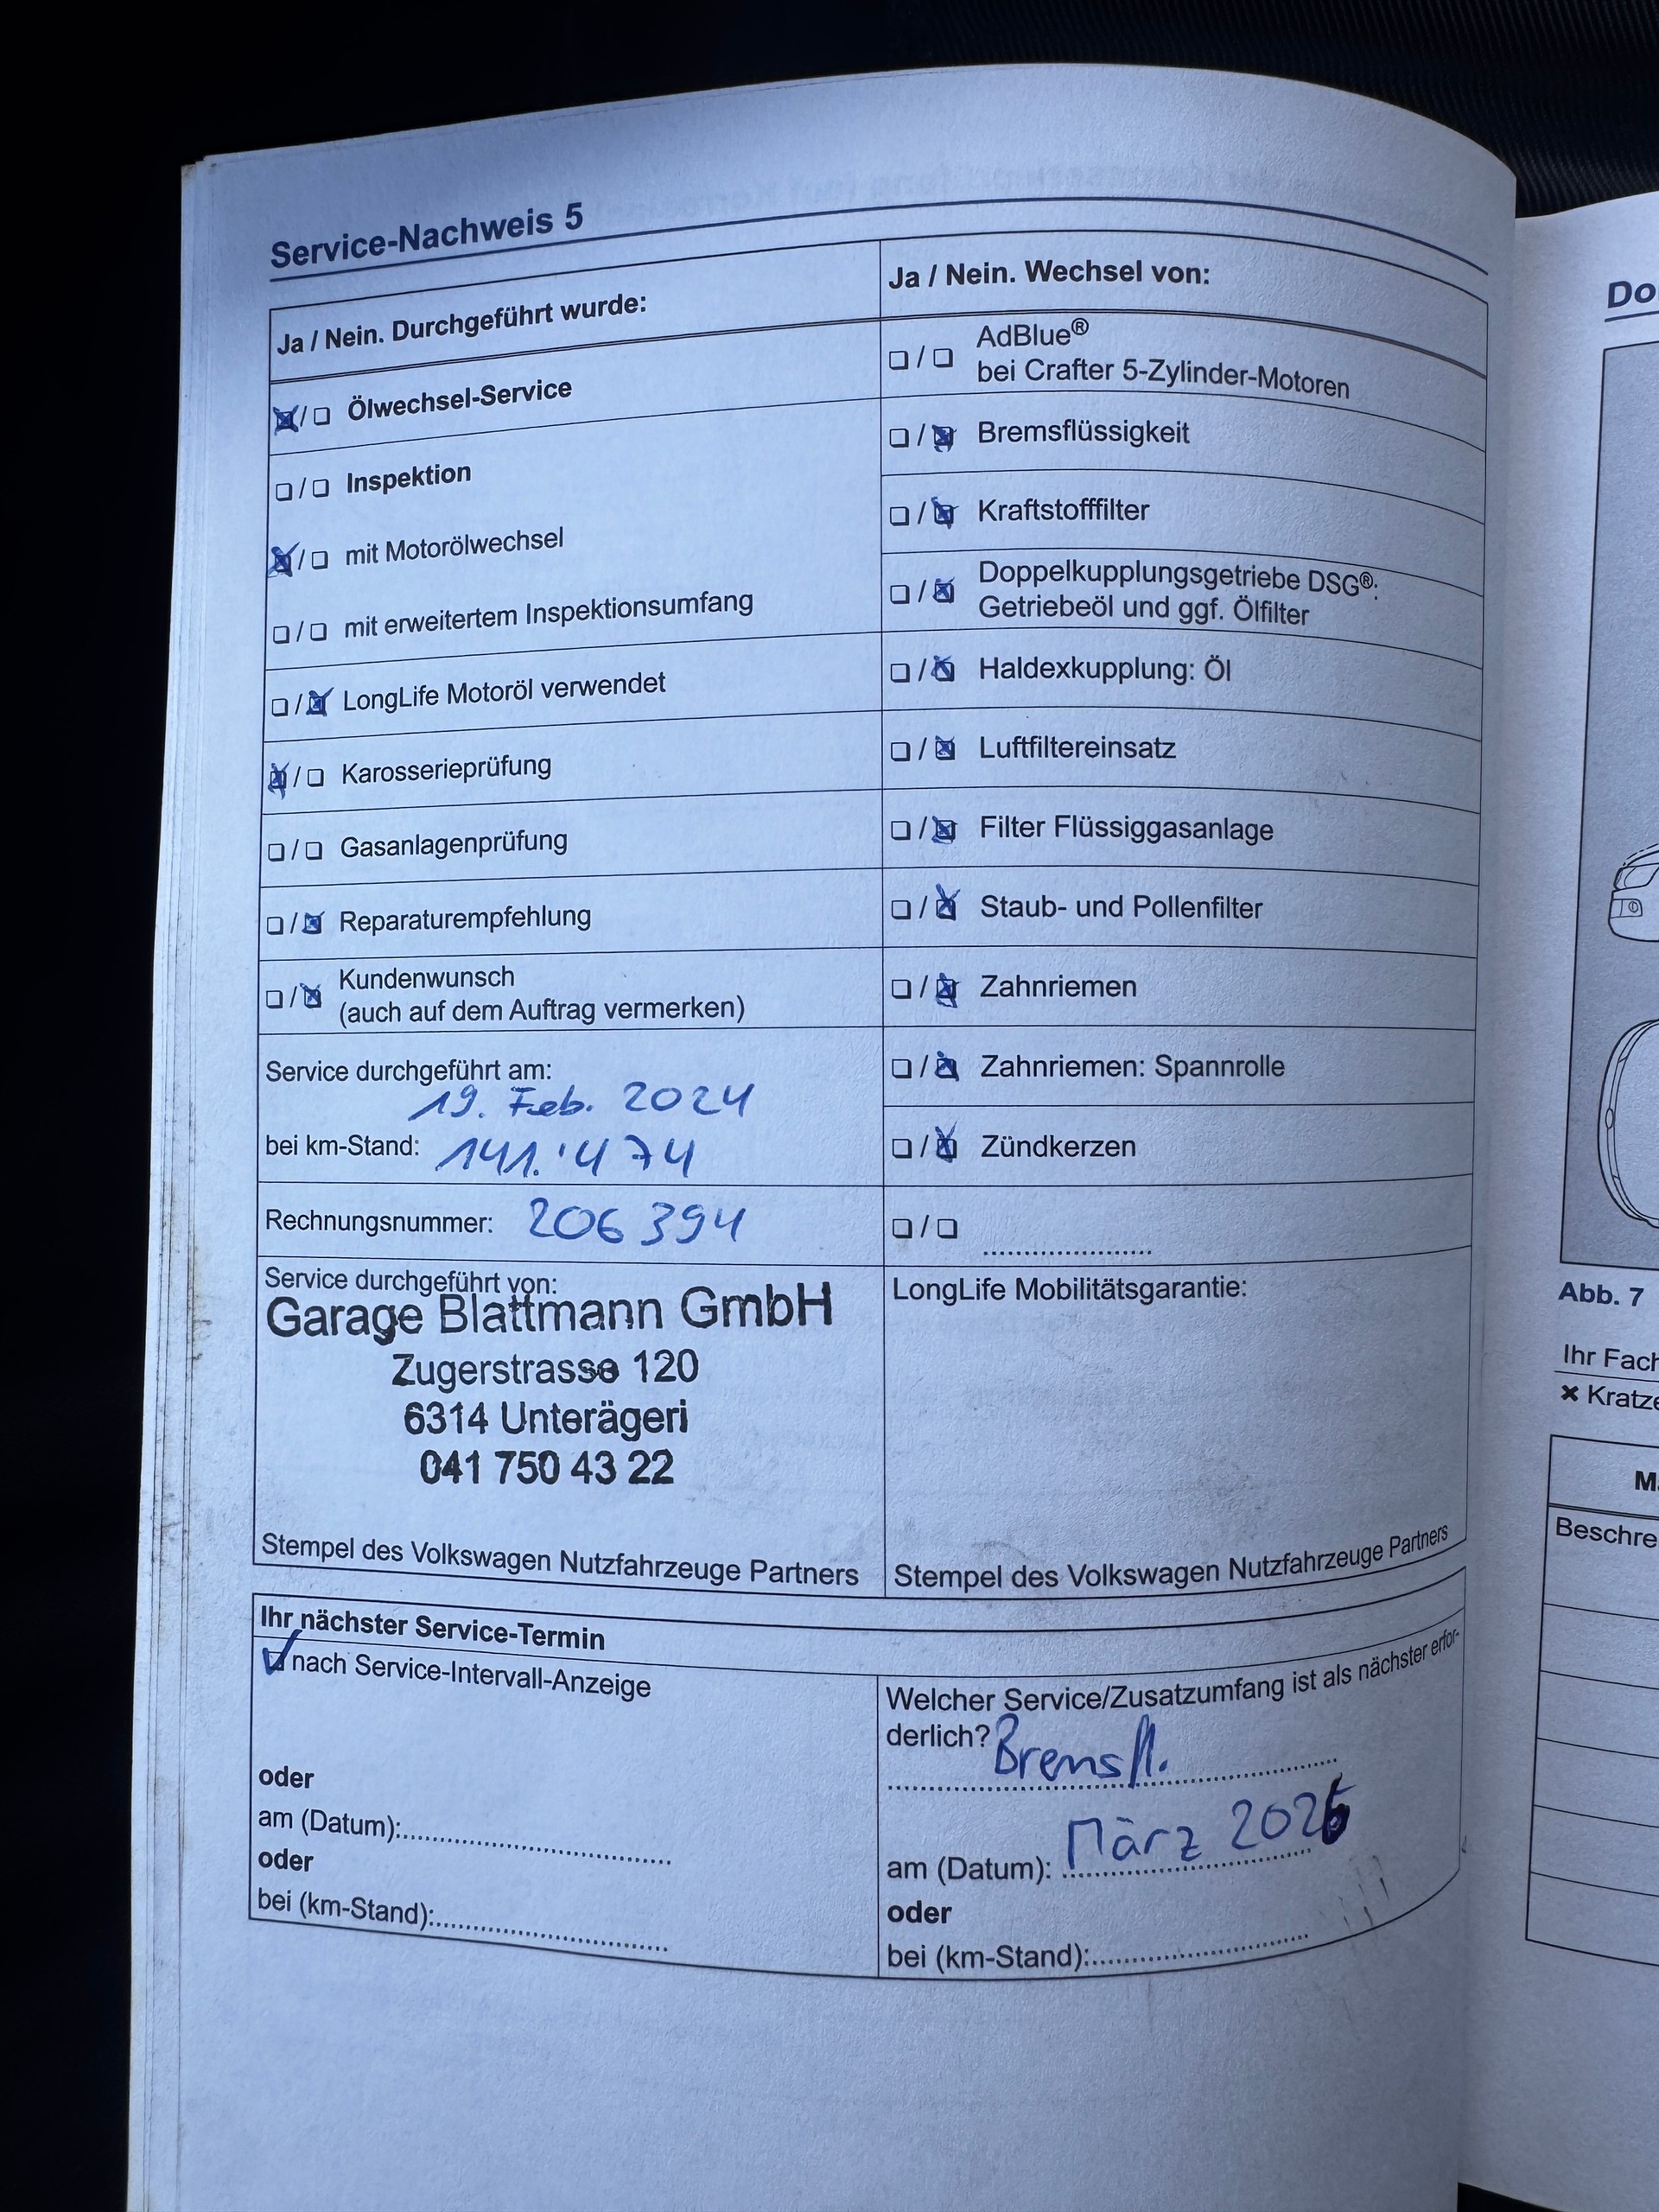 Service-Nachweis 5
Ja / Nein. Durchgeführt wurde:
☒/❏ Ölwechsel-Service
❏/❏ Inspektion
☒/❏ mit Motorölwechsel
❏/❏ mit erweitertem Inspektionsumfang
❏/☒ LongLife Motoröl verwendet
☒/❏ Karosserieprüfung
❏/❏ Gasanlagenprüfung
❏/☒ Reparaturempfehlung
❏/☒ Kundenwunsch
(auch auf dem Auftrag vermerken)
Service durchgeführt am:
19. Feb. 2024
bei km-Stand: 141.'474
Rechnungsnummer: 206 394
Service durchgeführt von:
Garage Blattmann GmbH
Zugerstrasse 120
6314 Unterägeri
041 750 43 22
Stempel des Volkswagen Nutzfahrzeuge Partners
Ja / Nein. Wechsel von:
❏/❏ AdBlue®
bei Crafter 5-Zylinder-Motoren
❏/☒ Bremsflüssigkeit
❏/☒ Kraftstofffilter
❏/☒ Doppelkupplungsgetriebe DSG®:
Getriebeöl und ggf. Ölfilter
❏/☒ Haldexkupplung: Öl
❏/☒ Luftfiltereinsatz
❏/☒ Filter Flüssiggasanlage
❏/☒ Staub- und Pollenfilter
❏/☒ Zahnriemen
❏/☒ Zahnriemen: Spannrolle
❏/☒ Zündkerzen
❏/❏ ....................
LongLife Mobilitätsgarantie:
Stempel des Volkswagen Nutzfahrzeuge Partners
Ihr nächster Service-Termin
☑ nach Service-Intervall-Anzeige
oder
am (Datum):
oder
bei (km-Stand):
Welcher Service/Zusatzumfang ist als nächster erfor-
derlich? Bremsfl.
am (Datum): März
oder
bei (km-Stand):
Abb. 7
Ihr Fach
✖ Kratze
Beschre